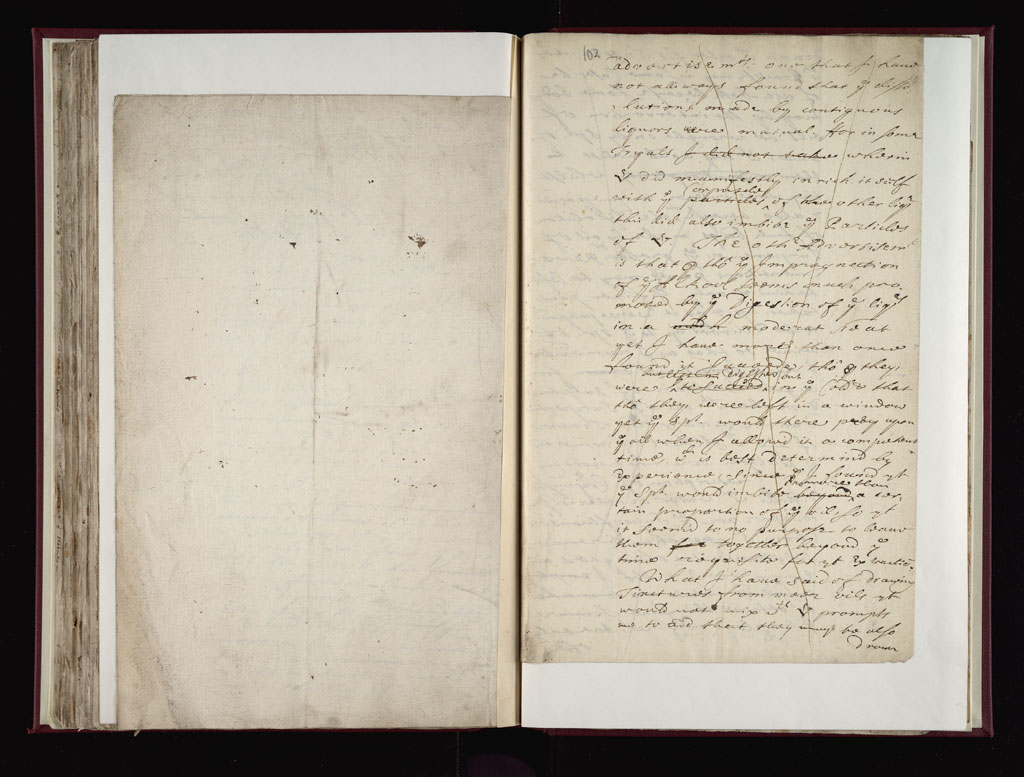 102
advertisemts: one that I have
not allways found that ye disso
lutions made by contiguous
liquors were mutual ffor in some
Tryals I did not take wherin
did manifestly inrich it self
with ye particles Corpuscles of the other liqr
this did also imbibe ye Particles
of The othr Advertisemt
is that tho ye Impregnation
of ye Alchool seems much pro
moted by ye Digestion of ye liqrs
in a moderat heat
yet I have more than once
found it succeede, tho they
were in ye Cold & that
tho they were left in a window
yet ye Spt. would there prey upon
ye oil when I allowed it a competent
time, wch is best determind by
Experience, since I found yt
ye Spt. would imbibe beyond no more than a cer
tain proportion of ye oil, so yt
it seemed to no purpose to leave
them for together beyond ye
time requisite for yt Extractio
What I have said of drawing
Tinctures from meer oils yt
would not mix wth prompts
me to add that they may be also
drawn